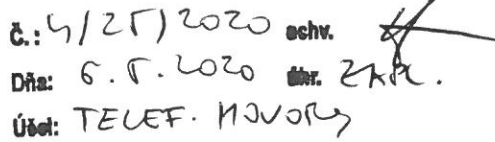 č.: 4/25/2020 schv.
Dňa: 6.5.2020 úhr. ZAPL.
Účel: TELEF. HOVORY